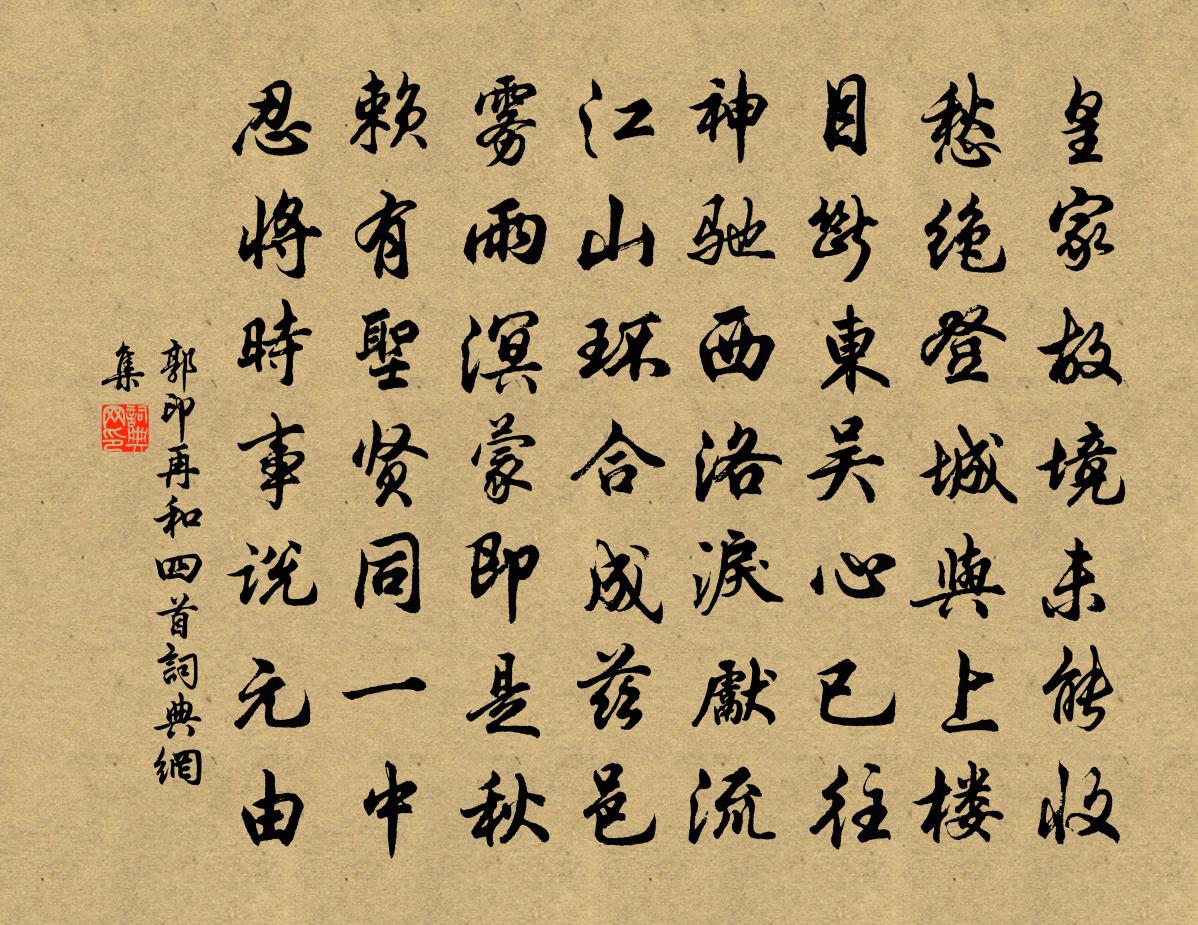 皇家故境未能收
愁绝登城與上楼
目斷東吴心已往
神驰西洛淚獻流
江山环合成兹邑
雾雨溟蒙即是秋
赖有聖贤同一中
忍將時事说元由
郭印再和四首詞典網
集
詞典网印